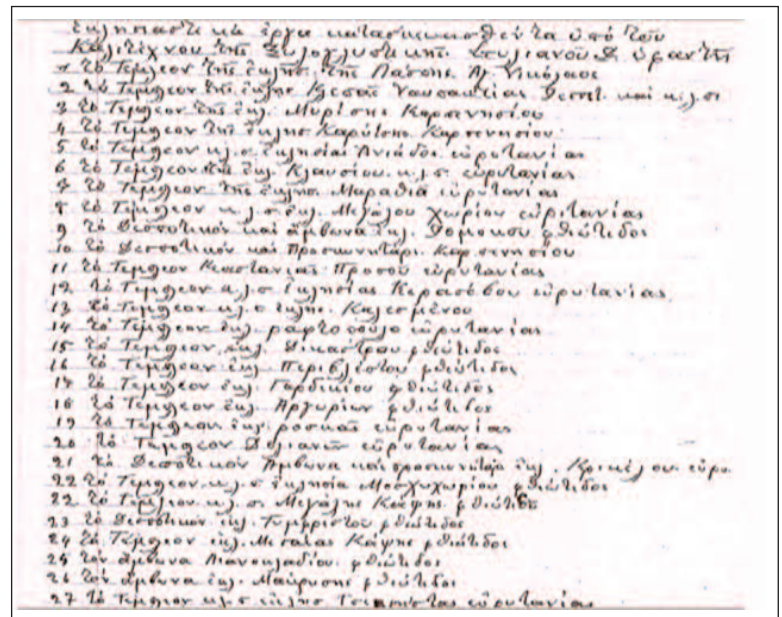 Ἐκλησιαστικά ἔργα κατασκευασθέντα ὑπό τοῦ
Καλιτέχνου τῆς Ξυλογλυπτικῆς Στυλιανοῦ ὑφαντῆ
1 τό Τέμπλεον τῆς ἐκλησ. τῆς Ἅγ. Νικόλαος
2 τό Τέμπλεον τῆς ἐκλησ Ναυπακτίας Δεσποτ. καί κ.λ.π.
3 τό Τέμπλεον τῆς ἐκλ. Μυρίσης Καρπενησίου
4 τό Τέμπλεον τῆς ἐκλησ Καρίτσης Καρπενησίου
5 τό Τέμπλεον κ.λ.π. ἐκλησίας Ἀνιάδας εὐρυτανίας
6 τό Τέμπλεον τῆς ἐκλ. Κλαυσίου κ.λ.π. εὐρυτανίας
7 τό Τέμπλεον τῆς ἐκλησ. Μαραθιά εὐρυτανίας
8 τό Τέμπλεον κ.λ.π. ἐκλ. Μεγάλου χωρίου εὐριτανίας
9 τό Δεσποτικόν καί ἄμβωνα ἐκλ. Δομοκού φθιώτιδος
10 τό Δεσποτικόν και Προσκυνητάρι Καρπενησίου
11 τό Τέμπλεον Καστανιάς Προσού εὐρυτανίας
12 τό Τέμπλεον κ.λ.π ἐκλησίας Κερασόβου εὐρυτανίας
13 τό Τέμπλεον κ.λ.π ἐκλησ. Καλεσμένου
14 τό Τέμπλεον ἐκλ. ραφτοπουλο εὐρυτανίας
15 τό Τέμπλεον ἐκλ. Δικαστρου φθιώτιδος
16 τό Τέμπλεον ἐκλ. Περιβλέπτου φθιώτιδος
17 τό Τέμπλεον ἐκλ. Γαρδικίου φθιώτιδος
18 τό Τέμπλεον ἐκλ. Αργυρίων φθιώτιδος
19 τό Τέμπλεον ἐκλ. ροσκας εὐρυτανίας
20 τό Τέμπλεον Δολιανῶν εὐρυτανίας
21 τό Δεσποτικόν Ἄμβωνα καί προσκυνητάρ ἐκλ. Κρικέλου εὐρυ.
22 τό Τέμπλεον κ.λ.π ἐκλησία Μοσχοχωρίου φθιώτιδος
22 τό Τέμπλεον κ.λ.π. Μεγάλης Κάψης φθιώτιδο
23 τό Δεσποτικόν ἐκλ. Τυμφριστοῦ φθιώτιδος
24 τό Τέμπλεον ἐκλ. Μεσαίας Κάψης φθιώτιδος
25 τόν ἄμβωνα Λιανοκλαδίου φθιώτιδος
26 τόν ἄμβωνα ἐκλ. φθιώτιδος
27 τό Τέμπλεον κ.λ.π ἐκλησ εὐρυτανίας